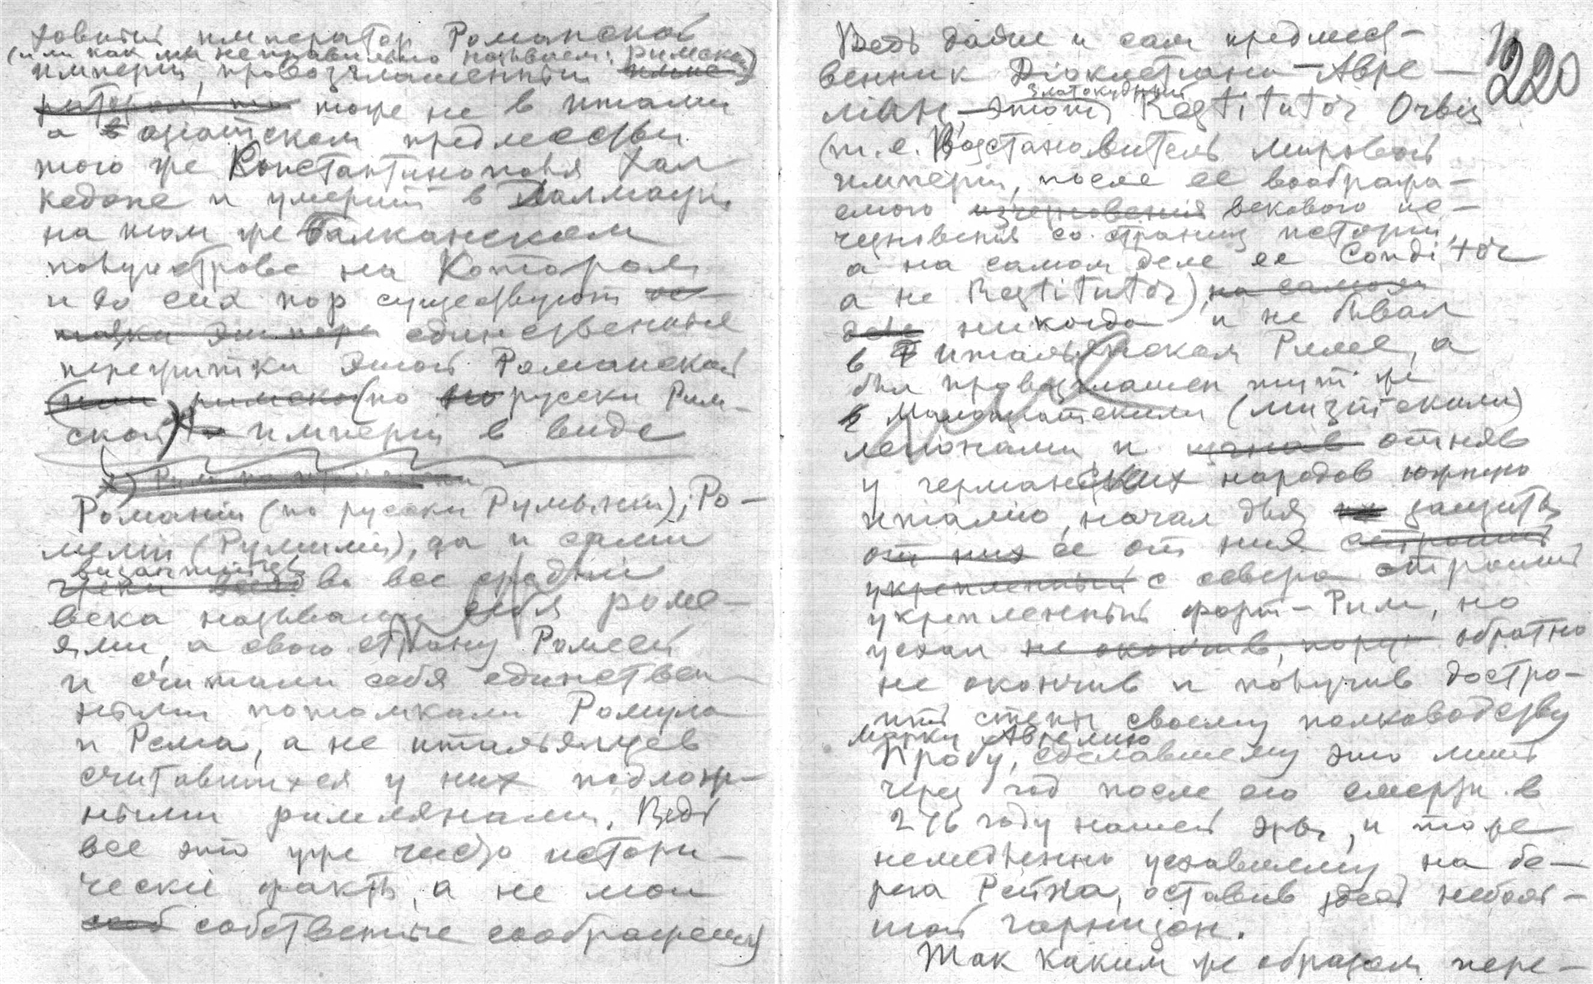 ховный император Романской
(или как мы неправильно называем: Римской)
империи, провозглашенный
тоже не в Италии
а в азиатском предместьи
того же Константинополя Хал
кедоне и умерший в Далмации
на том же Балканском
полуострове на котором
и до сих пор существуют
единственныя
пережитки этой Романской
(по русски Рим-
ской) империи в виде
Романии (по русски Румынии); Ро-
мелии (Румилии), да и сами
византийцы во все средние
века называли себя роме-
ями, а свою страну Ромеей
и считали себя единствен-
ными потомками Ромула
и Рема, а не итальянцев
считавшихся у них подлож-
ными римлянами. Ведь
все это уже чисто истори-
ческие факты, а не мои
собственные соображения
220
Ведь далее и сам предшест-
венник Диоклетиана—Авре-
лиан—этот златокудрый Restitutor Orbis
(т.е. Возстановитель мировой
империи, после ее воображае-
емого векового ис-
чезновения со страниц истории,
а на самом деле ее Conditor
а не Restitutor),
никогда и не бывал
в итальянском Риме, а
был провозглашен тут же
Малоазиатскими (мизийскими)
легионами и отняв
у германских народов южную
италию, начал для защиты
ее от них
с севера строить
укрепленный форт—Рим, но
уехал обратно
не окончив и поручив достро-
ить стены своему полководцу
Марку Аврелию
Пробу, сделавшему это лишь
через год после его смерти в
276 году нашей эры, и тоже
немедленно уехавшему на бе-
рега Рейна, оставив здесь неболь-
шой гарнизон.
Так каким же образом пере-